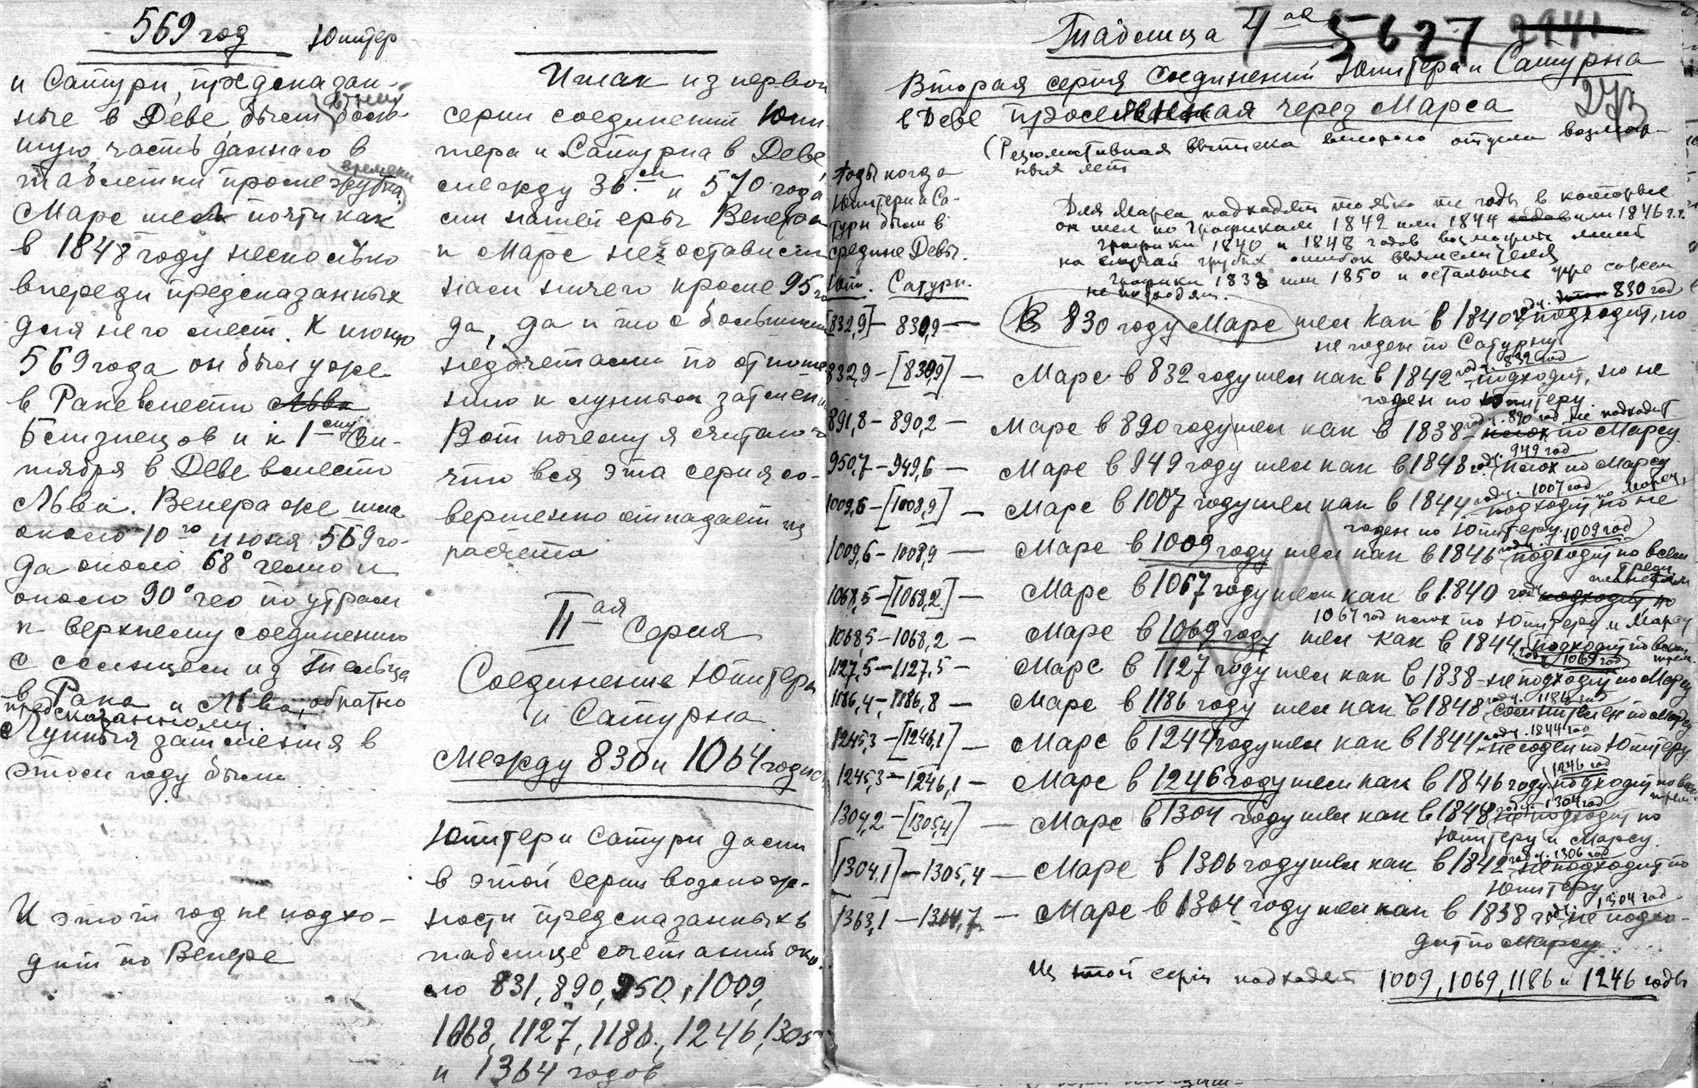 569 год Юпитер
и Сатурн, предсказан-
ные в Деве, были боль-
шую часть даннаго в
таблетки промежутка времени
Марс шел почти как
в 1848 году несколько
впереди предсказанных
для него мест. К июню
569 года он был уже
в Раке вместо Льва
Близнецов и к 1
тября в Деве вместо
Льва. Венера же шла
около 10го июня 569 го-
да около 68°
около 90° по утрам
к верхнему соединению
с солнцем из Тельца
в Рака и Льва, обратно
предсказанному.
Лунныя затмения в
этом году были
И этот год не подхо-
дит по Венере
Итак из первой
серии соединений Юпи-
тера и Сатурна в Деве
между 36 и 570 года
ми нашей эры Венера
и Марс не оставили
нам ничего кроме 95 го
да, да и то с большими
недочетами по отноше
нию к лунным затмени
Вот почему я считаю
что вся эта серия со-
вершенно отпадает из
расчета
IIая Серия
Соединение Юпитера
и Сатурна
Между 830 и 1064 годами
Юпитер и Сатурн дают
в этой серии возмож-
ности предсказанных в
таблице сочетаний око-
ло 831, 890, 950, 1009,
1068, 1127, 1186, 1246, 1305
и 1364 годов
Таблица 5627
Вторая серия соединений Юпитера и Сатурна
273
в Деве прослеженная через Марса
(Резюмативная выписка
ных лет
Годы когда
Юпитер и Са-
турн были в
средине Девы.
Юпит. Сатурн.
Для Марса подходят только те годы в которые
он шел по графикам 1842 или 1844 или 1846 г.г.
Графики 1840 и 1848 годов возможны лишь
на случай грубых ошибок вычислителя
Графики 1838 или 1850 и остальные уже совсем
не подходят.
[832,9] – 830,9 — В 830 году Марс шел как в 1840 г. 830 год подходит, но
не годен по Сатурну
832,9 – [830,9] — Марс в 832 году шел как в 1842 832 год подходит, но не
годен по Юпитеру.
891,8 – 890,2 — Марс в 890 году шел как в 1838 890 год не подходит по Марсу
950,7 – 949,6 — Марс в 949 году шел как в 1848 949 год плох по Марсу
1009,6 – [1008,9] — Марс в 1007 году шел как в 1844, 1007 год подходит по Марсу, но не
годен по Юпитеру
1009,6 – 1008,9 — Марс в 1009 году шел как в 1846 1009 год подходит по всем
трем планетам
1068,5 – [1068,2] — Марс в 1067 году шел как в 1840 год
1067 год плох по Юпитеру и Марсу
1068,5 – 1068,2 — Марс в 1069 году шел как в 1844, 1069 год подходит по всем трем
1127,5 – 1127,5 — Марс в 1127 году шел как в 1838 не подходит по Марсу
1186,4 – 1186,8 — Марс в 1186 году шел как в 1848, 1186 год сомнителен по Марсу
1245,3 – [1246,1] — Марс в 1244 году шел как в 1844 1244 год не годен по Юпитеру
1245,3 – 1246,1 — Марс в 1246 году шел как в 1846 году 1246 год подходит по всем трем
1304,2 – [1305,4] — Марс в 1304 году шел как в 1848 1304 год не подходит по
Юпитеру и Марсу.
[1304,1] – 1305,4 — Марс в 1306 году шел как в 1842 1306 год не подходит по
Юпитеру
1363,1 – 1364,7 — Марс в 1364 году шел как в 1838 год 1304 год не подхо-
дит по Марсу
Из этой серии подходят 1009, 1069, 1186 и 1246 годы